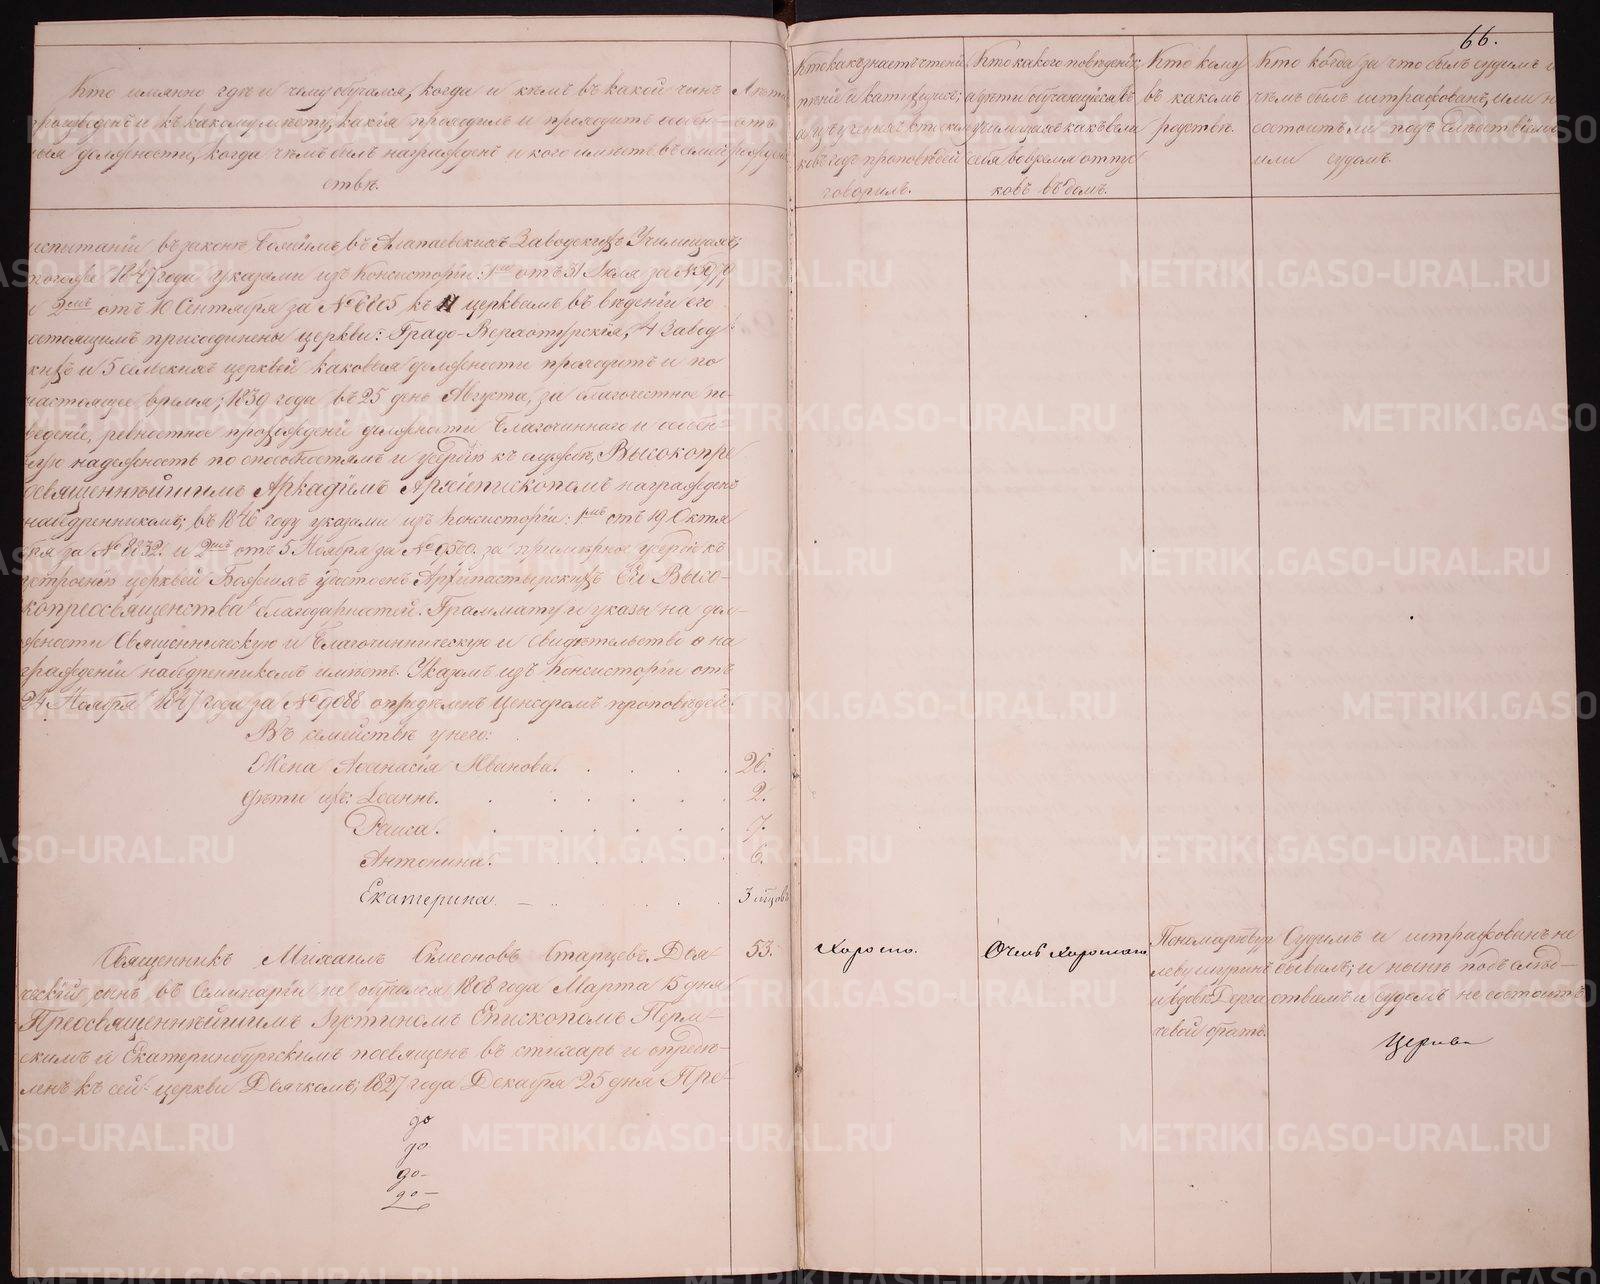 66.
Кто имянно гдѣ и чему обучался, когда и кѣмъ въ какой чинъ
произведенъ и къ какому мѣсту, какія проходилъ и проходитъ особен-
ныя должности, когда чѣмъ былъ награжденъ и кого имѣетъ въ семей-
ствѣ.
Лѣта
отъ
рожденія
Кто какъ знаетъ чтеніе
пѣніе и катихизисъ;
а изъ ученыхъ
говорилъ.
Кто какого поведенія;
а дѣти обучающіеся въ
училищахъ какъ вели
себя во время отпус
ковъ въ домъ.
Кто кому
въ какомъ
родствѣ.
Кто когда за что былъ судимъ и
чѣмъ былъ штрафованъ, или н
состоитъ ли подъ слѣдствіемъ
или судомъ.
испытаніи въ законѣ Божіемъ въ Алапаевскихъ Заводскихъ Училищахъ;
тогоже 1847 года указами изъ Консисторіи: 1мъ отъ 31 Июля за №5979
и 2мъ отъ 10 Сентября за №6805 къ церквамъ въ вѣденіи его
состоящимъ присоединены церкви: Градо-Верхотурскія, 4 Завод
скихъ и 5 сельскихъ церквей каковыя должности проходитъ и по
настоящее время; 1839 года въ 25 день Августа, за благочестное по-
веденіе, ревностное прохожденіе должности Благочиннаго и особен-
ную надежность по способностямъ и усердію къ службѣ, Высокопре
освященнѣйшимъ Аркадіемъ Архіепископомъ награжденъ
набедренникомъ; въ 1846 году указами изъ Консисторіи: 1мъ отъ 19 Октя
бря за №8832. и 2мъ отъ 5 Ноября за №9560. за примѣрное усердіе къ
устроенію церквей Божіихъ удостоенъ Архипастырскихъ Его Высо-
копреосвященства благодарностей. Граммату и указы на дол-
жности Священническую и Благочинническую и свидѣтельство о на
гражденіи набедренникомъ имѣетъ. Указомъ изъ Консисторіи отъ
24 Ноября 1847 года за №9088 опредѣленъ Цензоромъ проповѣдей.
Въ семействѣ у него:
Жена Аѳанасія Иванова. 26.
Дѣти ихъ: Іоаннъ. 2.
Раиса. 7.
Антонина. 6.
Екатерина. 3 мѣсцовъ
Священникъ Михаилъ Симеоновъ Старцевъ. Дья-
ческій сынъ въ Семинаріи не обучался 1808 года Марта 15 дня
Преосвященнѣйшимъ Іустиномъ Епископомъ Перм-
скимъ и Екатеринбургскимъ посвященъ въ стихарь и опредѣ-
ленъ къ сей церкви Дьячкомъ; 1827 года Декабря 25 дня Пре-
53.
Хорошо.
Очень хорошаго
Пономарю
леву шуринъ
и вдовѣ Дерга
чевой братъ.
Судимъ и штрафованъ не
бывалъ; и нынѣ подъ слѣд-
ствіемъ и судомъ не состоитъ
Церкви
до
до
до-
до-
METRIKI.GASO-URAL.RU